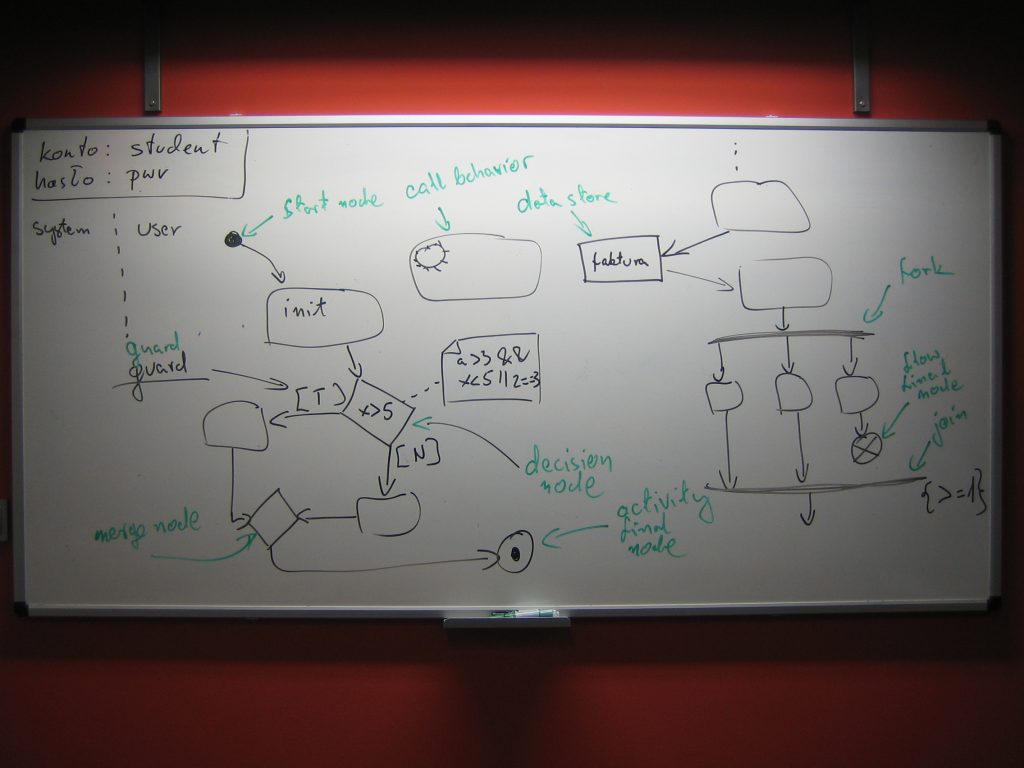 konto: student
hasło: pwr
system
user
start node
call behavior
data store
faktura
init
fork
guard
guard
a>3 &&
x<5 || z==3
[T]
x>5
[N]
flow
final
node
join
decision
node
merge node
activity
final
node
{>=1}